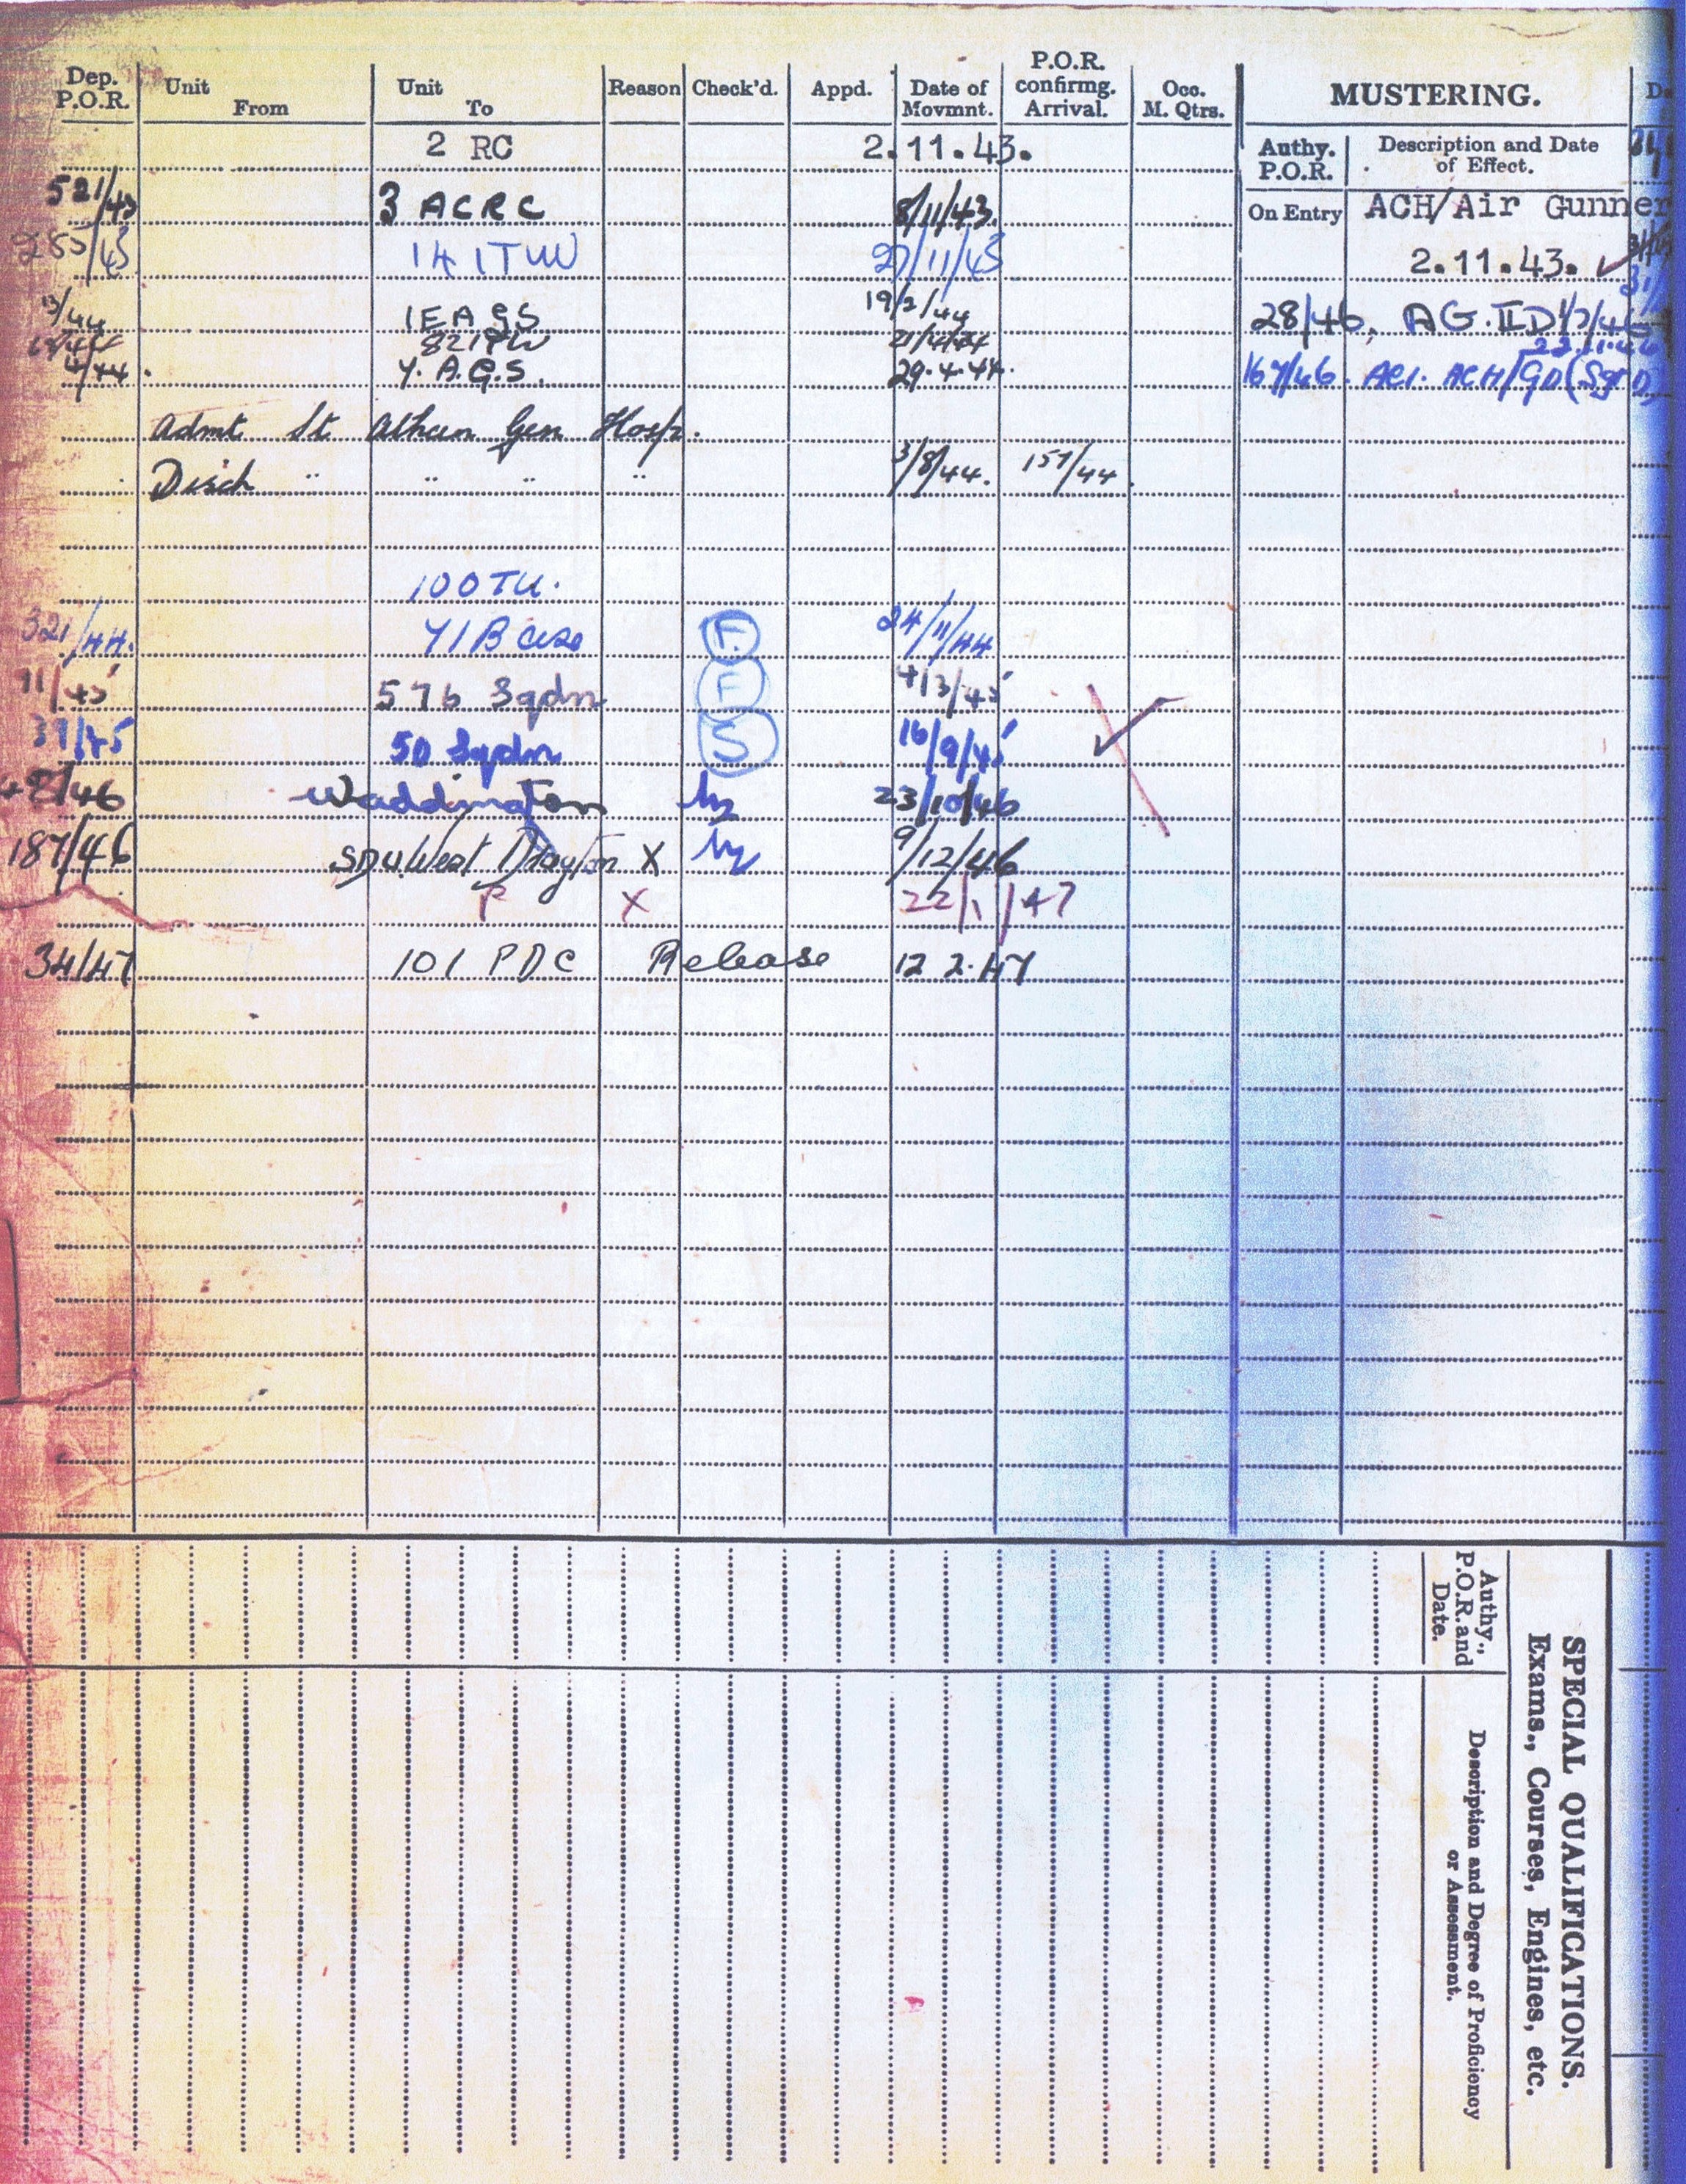 Dep. P.O.R. Unit From Unit To Reason Check'd. Appd. Date of Movmnt. P.O.R. confirmg. Arrival. Occ. M. Qtrs. MUSTERING.
Authy. P.O.R. Description and Date of Effect.
2 RC 2.11.43.
521/43 3 ACRC 8/11/43. On Entry ACH/Air Gunner
14 ITW 27/11/43 2.11.43.
13/44 1EAGS 19/2/44 28/46, AG. II
21/4/44
4/44. 7. A.G.S. 29.4.44. 167/46. AC1. ACH/GD (Sgt
Admt St Athan Gen Hosp.
Disch " " " " 3/8/44. 157/44.
10 OTU.
321/44. 71 Base F. 24/11/44
71/45 576 Sqdn F 4/3/45
37/45 50 Sqdn S 16/9/45
Waddington 23/10/46
187/46 SDU West Drayton X 9/12/46
P X 22/1/47
34/47 101 PDC Release 12 2.47
SPECIAL QUALIFICATIONS.
Exams., Courses, Engines, etc.
Authy., P.O.R. and Date.
Description and Degree of Proficiency or Assessment.